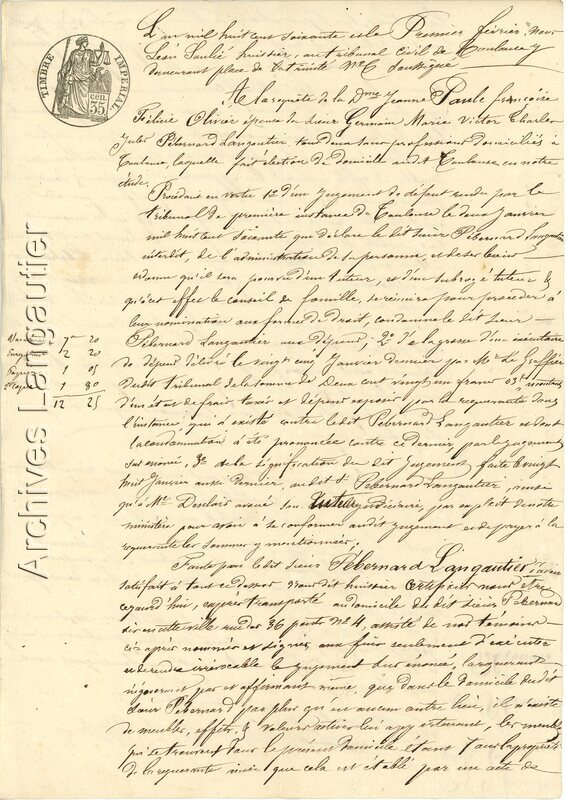 L'an mil huit cent soixante et le Premier février, Nous
Léon Saulié huissier, au tribunal Civil de Toulouse y
demeurant place de la trinité N° 6 Soussigné
A la requête de la Dme Jeanne Paule françoise
Félicie Olivier épouse du sieur Germain Marie Victor Charles
Jules Pébernard Langautier, tous deux sans profession domiciliés à
Toulouse, laquelle fait élection de domicile audit Toulouse en notre
étude.
Procédant en vertu 1° d'un Jugement de défaut rendu par le
tribunal de première instance de Toulouse le deux Janvier
mil huit cent soixante qui déclare le dit sieur Pébernard Langautier
interdit, de l'administration de sa personne, et de ses biens
ordonne qu'il sera pourvu d'un tuteur, et d'un subrogé tuteur &
qu'à cet effet le conseil de famille, se réunira pour procéder à
leur nomination aux formes de Droit, condamne le dit sieur
Pébernard Langautier aux dépens; 2° de la grosse d'un exécutoire
de dépens délivré le vingt cinq Janvier dernier par Mr Le Greffier
du dit tribunal de la somme de Deux cent vingt un francs 03c montant
d'un état de frais taxés et dépens exposés par la requérante dans
l'instance, qui a existé contre le dit Pébernard Langautier et dont
la condamnation a été prononcée contre ce dernier, par le jugement
sus énoncé, 3° de la signification du dit Jugement faite le vingt
huit Janvier aussi Dernier, au dit Sr Pébernard Langautier, ainsi
qu'à Me avoué son judiciaire, par exploit de notre
ministère pour avoir à se conformer audit jugement et de payer à la
requérante les sommes y mentionnées.
Faute par le dit sieur Pébernard Langautier d'avoir
satisfait à tout ce dessus Nous dit huissier Certifions nous être
cejourd'hui, exprès transporté au domicile du dit sieur Pébernard
sis en cette ville rue des 36 ponts N° 4, assisté de nos témoins
ci-après nommés et signés aux fins seulement d'exécuter
et de rendre irrévocable le jugement sus énoncé, la requérante
n'ignorant pas et affirmant même, que dans le domicile du dit
Sieur Pébernard pas plus qu'en aucun autre lieu, il n'existe
de meubles, effets, & valeurs actives lui appartenant, les meubles
qui se trouvent dans le présent domicile étant tous la propriété
de la requérante ainsi que cela est établi par un acte de
7 20
2 20
1 05
1 80
12 25
TIMBRE IMPÉRIAL
35 CEN.
Archives Langautier